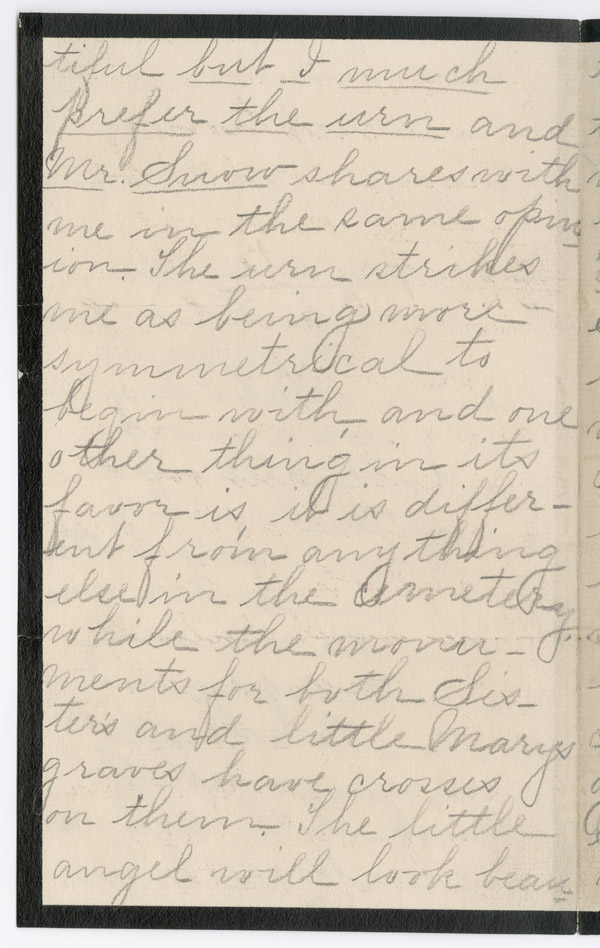 tiful but I much
prefer the urn and
Mr. Snow shares with
me in the same opin-
ion. The urn strikes
me as being more
symmetrical to
begin with, and one
other thing in its
favor is, it is differ-
ent from any thing
else in the cemetery.
while the monu-
ments for both Sis-
ter's and little Marys
graves have crosses
on them. The little
angel will look beau-